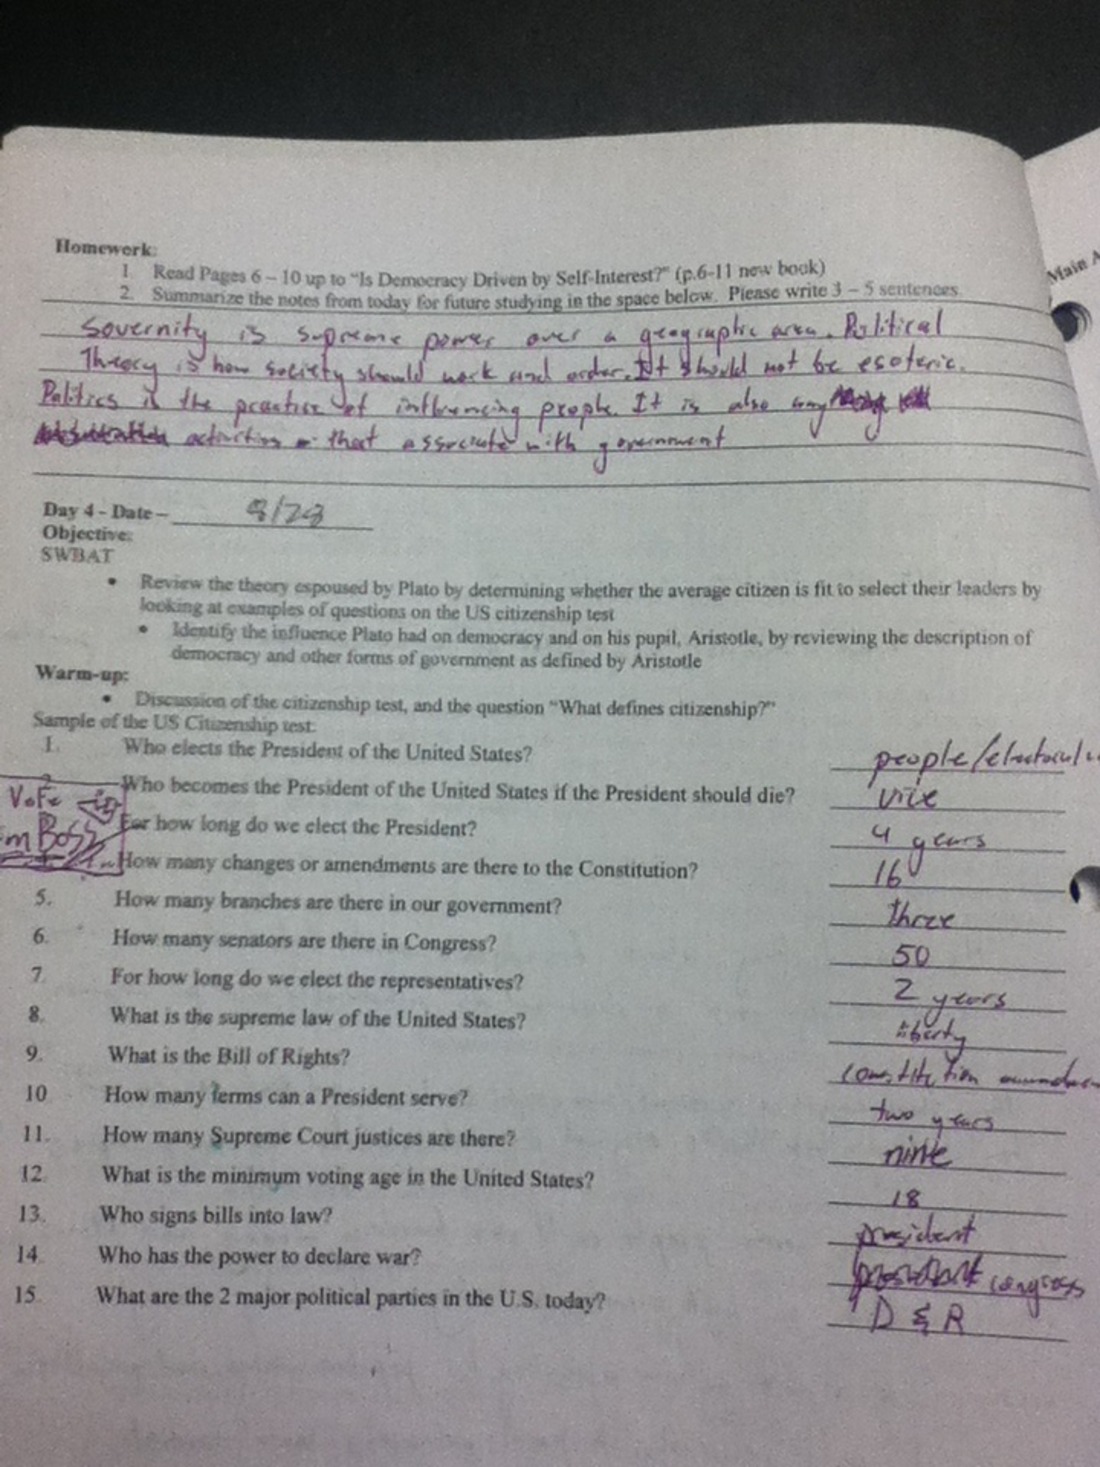 Homework:
1. Read Pages 6 – 10 up to "Is Democracy Driven by Self-Interest?" (p.6-11 new book)
2. Summarize the notes from today for future studying in the space below. Please write 3 – 5 sentences.
Main A
Sovernity is supreme power over a geographic area. Political
Theory is how society should work and order. It should not be esoteric.
Politics is the practice of influencing people. It is also any
activities that associate with government
Day 4 - Date – 8/28
Objective:
SWBAT
• Review the theory espoused by Plato by determining whether the average citizen is fit to select their leaders by
looking at examples of questions on the US citizenship test
• Identify the influence Plato had on democracy and on his pupil, Aristotle, by reviewing the description of
democracy and other forms of government as defined by Aristotle
Warm-up:
• Discussion of the citizenship test, and the question "What defines citizenship?"
Sample of the US Citizenship test:
1. Who elects the President of the United States? people/electoral
Who becomes the President of the United States if the President should die? vice
Vote
For how long do we elect the President? 4 years
m Boss
How many changes or amendments are there to the Constitution? 16
5. How many branches are there in our government? three
6. How many senators are there in Congress? 50
7. For how long do we elect the representatives? 2 years
8. What is the supreme law of the United States? liberty
9. What is the Bill of Rights? constitution
10 How many terms can a President serve? two years
11. How many Supreme Court justices are there? nine
12. What is the minimum voting age in the United States? 18
13. Who signs bills into law? president
14. Who has the power to declare war? congress
15. What are the 2 major political parties in the U.S. today? D & R